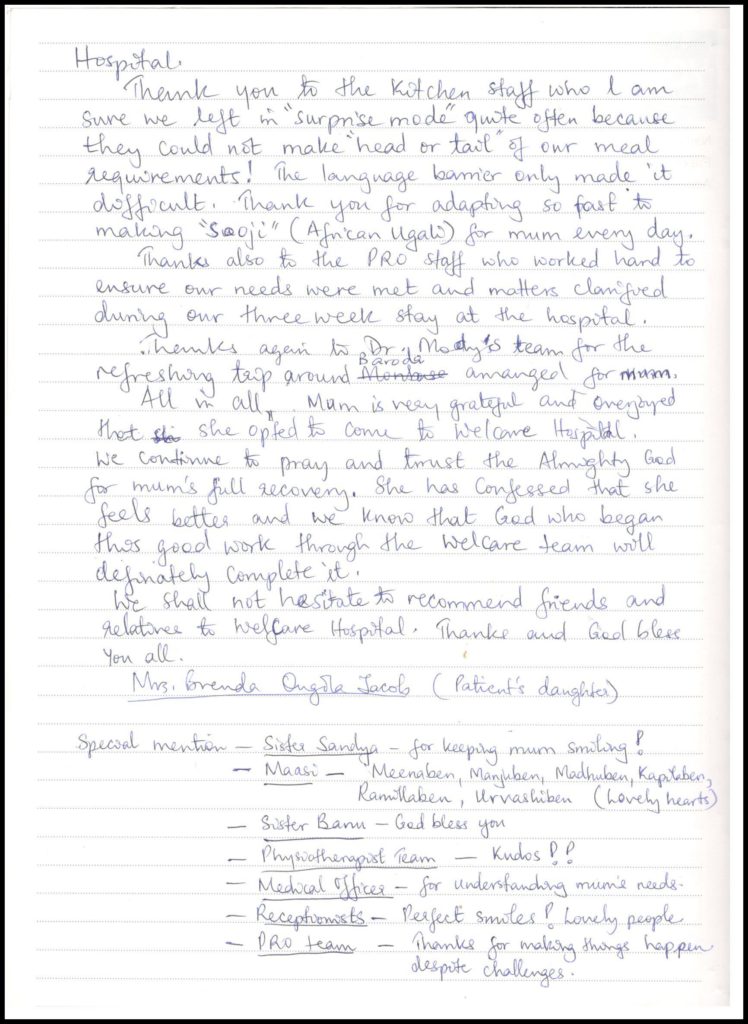 Hospital.
Thank you to the kitchen staff who I am
sure we left in "surprise mode" quite often because
they could not make "head or tail" of our meal
requirements! The language barrier only made it
difficult. Thank you for adapting so fast to
making "Sooji" (African Ugali) for mum every day.
Thanks also to the PRO staff who worked hard to
ensure our needs were met and matters clarified
during our three week stay at the hospital.
Thanks again to Dr. Mody's team for the
Baroda
refreshing trip around arranged for mum.
All in all, Mum is very grateful and overjoyed
that she opted to come to Welcare Hospital.
We continue to pray and trust the Almighty God
for mum's full recovery. She has confessed that she
feels better and we know that God who began
this good work through the Welcare team will
definately complete it.
We shall not hesitate to recommend friends and
relatives to Welfcare Hospital. Thanks and God bless
you all.
Mrs. Brenda Ongola Jacob (Patient's daughter)
Special mention – Sister Sandya – for keeping mum smiling!
– Maasi – Meenaben, Manjuben, Madhuben, Kapilaben,
Ramillaben, Urvashiben (Lovely hearts)
– Sister Banu – God bless you
– Physiotherapist Team – Kudos!!
– Medical Officer – for understanding mum's needs.
– Receptionists – Perfect smiles! Lovely people
– PRO team – Thanks for making things happen
despite challenges.